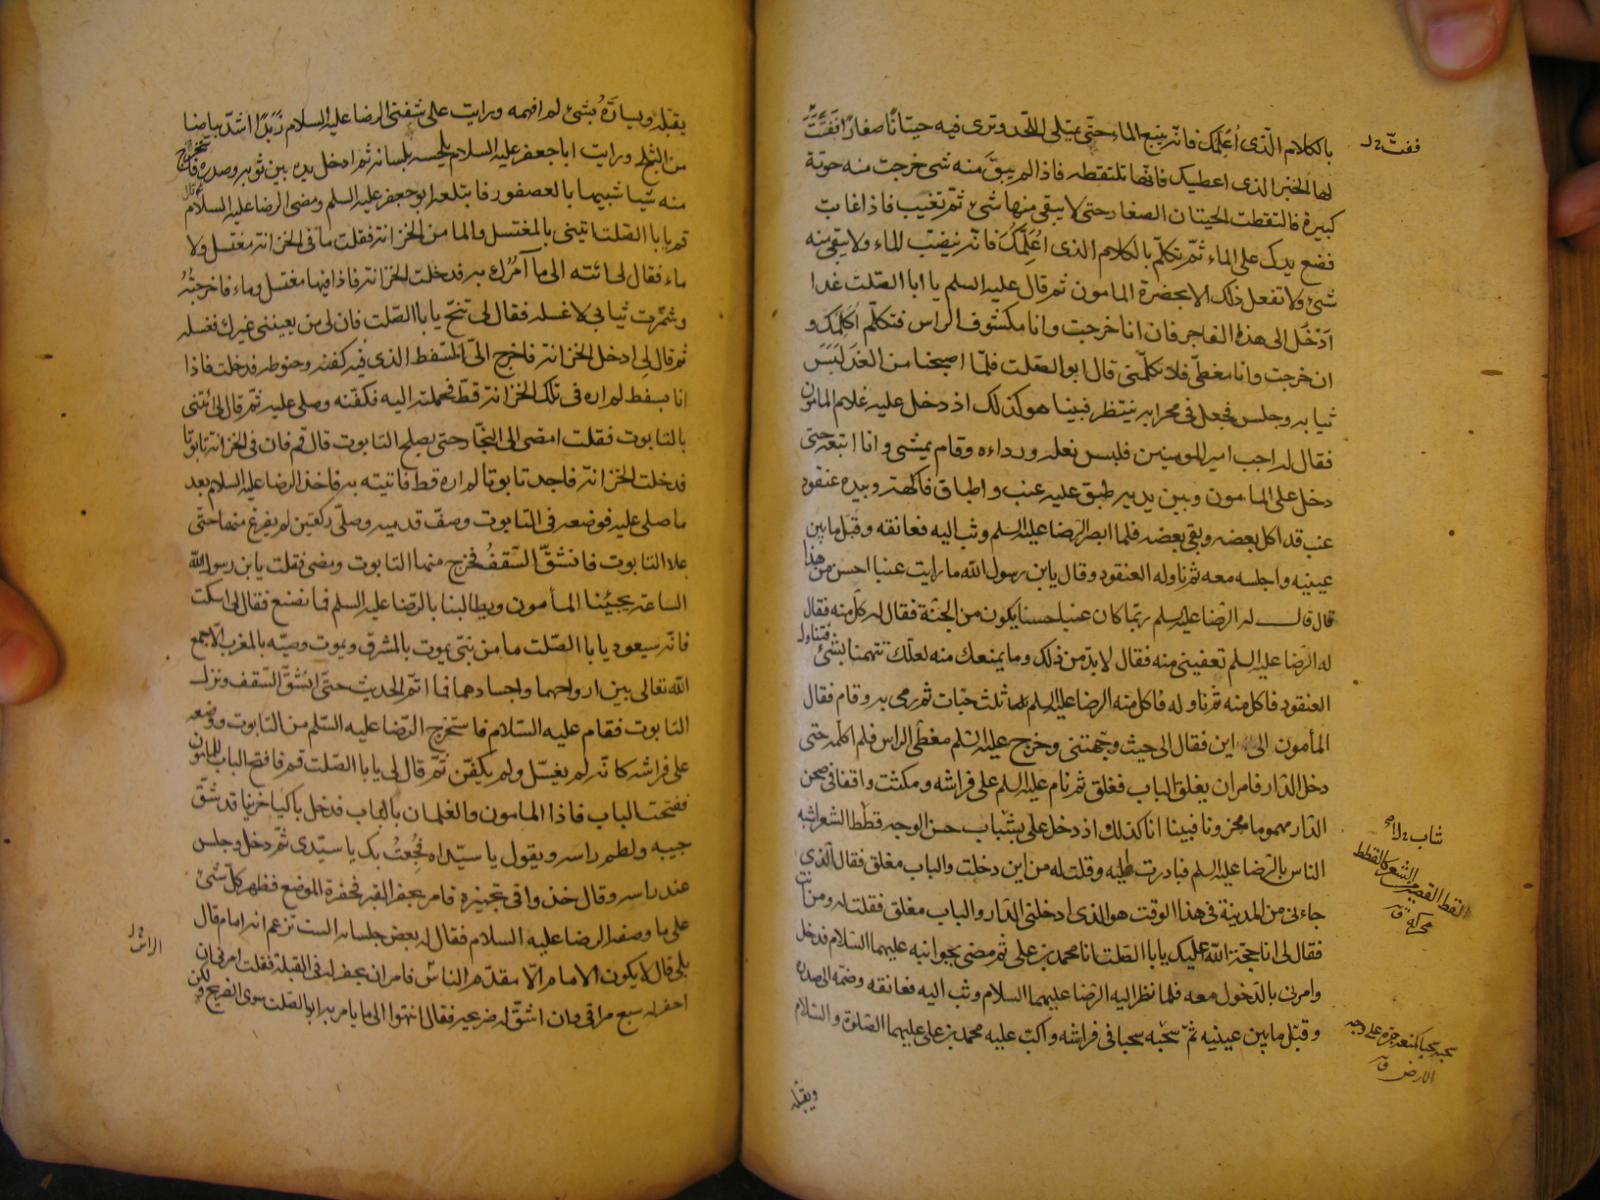 بالكلام الذى اعلمك فانه ينبع الماء حتى يمتلى اللحد وترى فيه حيتانا صغارا ففتت
ففتّ خ ل
لها الخبز الذى اعطيك فانها تلتقطه فاذا لم يبق منه شئ خرجت منه حوتة
كبيرة فالتقطت الحيتان الصغار حتى لا يبقى منها شئ ثم تغيب فاذا غابت
فضع يدك على الماء ثم تكلم بالكلام الذى اعلمك فانه ينضب الماء ولا يبقى منه
شئ ولا تفعل ذلك الا بحضرة المامون ثم قال عليه السلم يا ابا الصلت غدا
ادخل الى هذا الفاجر فان انا خرجت وانا مكشوف الراس فتكلم اكلمك و
ان خرجت وانا مغطى فلا تكلمنى قال ابو الصلت فلما اصبحنا من الغد لبس
ثيابه وجلس فجعل فى محرابه ينتظر فبينا هو كذلك اذ دخل عليه غلام المامون
فقال له اجب امير المومنين فلبس نعله ورداءه وقام يمشى وانا اتبعه حتى
دخل على المامون وبين يديه طبق عليه عنب واطباق فاكهة وبيده عنقود
عنب قد اكل بعضه وبقى بعضه فلما ابصر الرضا عليه السلم وثب اليه فعانقه وقبل ما بين
عينيه واجلسه معه ثم ناوله العنقود وقال يابن رسول الله ما رايت عنبا احسن من هذا
قال قال له الرضا عليه السلم ربما كان عنبا حسنا يكون من الجنة فقال له كل منه فقال
له الرضا عليه السلم تعفينى منه فقال لابد من ذلك وما يمنعك منه لعلك تتهمنا بشئ فتناول
العنقود فاكل منه ثم ناوله فاكل منه الرضا عليه السلم ثلث حبات ثم رمى به وقام فقال
المأمون الى اين فقال الى حيث وجهتنى وخرج عليه السلم مغطى الراس فلم اكلمه حتى
دخل الدار فامر ان يغلق الباب فغلق ثم نام عليه السلم على فراشه ومكثت واقفا فى صحن
الدار مهموما محزونا فبينا انا كذلك اذ دخل على بشباب حسن الوجه قططا الشعر اشبه
شاب خ ل
الناس بالرضا عليه السلم فبادرت اليه وقلت له من اين دخلت والباب مغلق فقال الذى
القط القصير من الشعر كالقطط
محركة ق
جاءنى من المدينة فى هذا الوقت هو الذى ادخلنى الدار والباب مغلق فقلت له ومن انت
فقال لى انا حجة الله عليك يا با الصلت انا محمد بن على ثم مضى نحو ابيه عليهما السلام فدخل
وامرنى بالدخول معه فلما نظر اليه الرضا عليهما السلام وثب اليه فعانقه وضمه الى صدره
وقبل ما بين عينيه ثم سحبه سحبا فى فراشه واكب عليه محمد بن على عليهما الصلوة والسلام
سحبه سحبا كمنعه جره على وجه
الارض ق
ويقبله
يقبله ويساره بشئ لم افهمه ورايت على شفتى الرضا عليه السلام زبدا اشد بياضا
من الثلج ورايت ابا جعفر عليه السلام يلحسه بلسانه ثم ادخل يده بين ثوبه وصدره فاستخرج
منه شيئا شبيها بالعصفور فابتلعه ابو جعفر عليه السلم ومضى الرضا عليه السلام قال
قم يا با الصلت ايتنى بالمغتسل والما من الخزانة فقلت ما فى الخزانة مغتسل ولا
ماء فقال لى ائته الى ما آمرك به فدخلت الخزانة فاذا فيها مغتسل وماء فاخرجته
وشمرت ثيابى لاغسله فقال لى تنح يا با الصلت فان لى من يعيننى غيرك فغسله
ثم قال لى ادخل الخزانة فاخرج الى السفط الذى فيه كفنه وحنوطه فدخلت فاذا
انا بسفط لم اره فى تلك الخزانة قط فحملته اليه فكفنه وصلى عليه ثم قال لى ائتنى
بالتابوت فقلت امضى الى النجار حتى يصلح التابوت قال قم فان فى الخزانة تابوتا
فدخلت الخزانة فاجد تابوتا لم اره قط فاتيته به فاخذ الرضا عليه السلام بعد
ما صلى عليه فوضعه فى التابوت وصف قدميه وصلى ركعتين لم يفرغ منهما حتى
علا التابوت فانشق السقف فخرج منها التابوت ومضى فقلت يابن رسول الله
الساعة يجيئنا المأمون ويطالبنا بالرضا عليه السلم فما نصنع فقال لى اسكت
فانه سيعود يا با الصلت ما من نبى يموت بالمشرق ويموت وصيه بالمغرب الا جمع
الله تعالى بين ارواحهما واجسادهما فما اتم الحديث حتى انشق السقف ونزل
التابوت فقام عليه السلام فاستخرج الرضا عليه السلم من التابوت ووضعه
على فراشه كانه لم يغسل ولم يكفن ثم قال لى يا با الصلت قم فافتح الباب للمامون
ففتحت الباب فاذا المامون والغلمان بالباب فدخل باكيا حزينا قد شق
جيبه ولطم راسه ويقول يا سيداه فجعت بك يا سيدى ثم دخل وجلس
عند راسه وقال خذوا فى تجهيزه فامر بحفر القبر فحفرة الموضع فظهر كل شئ
على ما وصفه الرضا عليه السلام فقال له بعض جلسائه الست تزعم انه امام قال
بلى قال لا يكون الامام الا مقدم الناس فامر ان يحفر له فى القبلة فقلت امرنى ان
الراس خ ل
احفر له سبع مراقى وان اشق له ضريحه فقال انتهوا الى ما يامر به ابو الصلت سوى الضريح ولكن